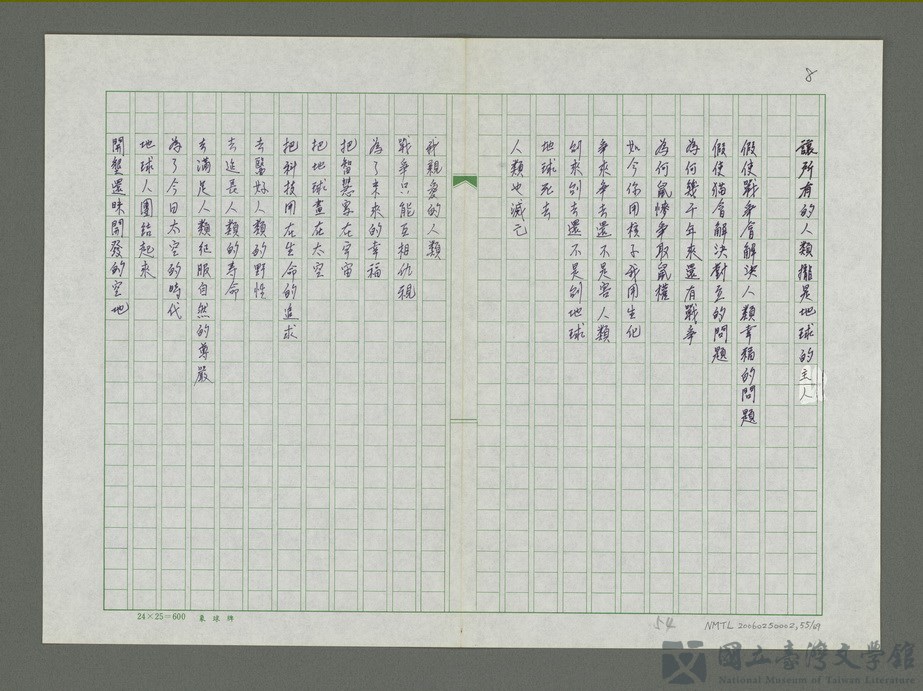 8
讓所有的人類攏是地球的主人
假使戰爭會解決人類幸福的問題
假使貓會解決對立的問題
為何幾千年來還有戰爭
為何鼠慘爭取鼠權
如今你用核子我用生化
爭來爭去還不是害人類
刣來刣去還不是刣地球
地球死去
人類也滅亡
我親愛的人類
戰爭只能互相仇視
為了未來的幸福
把智慧寫在宇宙
把地球畫在太空
把科技用在生命的追求
去醫好人類的野性
去延長人類的壽命
去滿足人類征服自然的尊嚴
為了今日太空的時代
地球人團結起來
開墾還昧開發的空地
24×25=600 象球牌
54
NMTL 20060250002,55/69
國立臺灣文學館
National Museum of Taiwan Literature